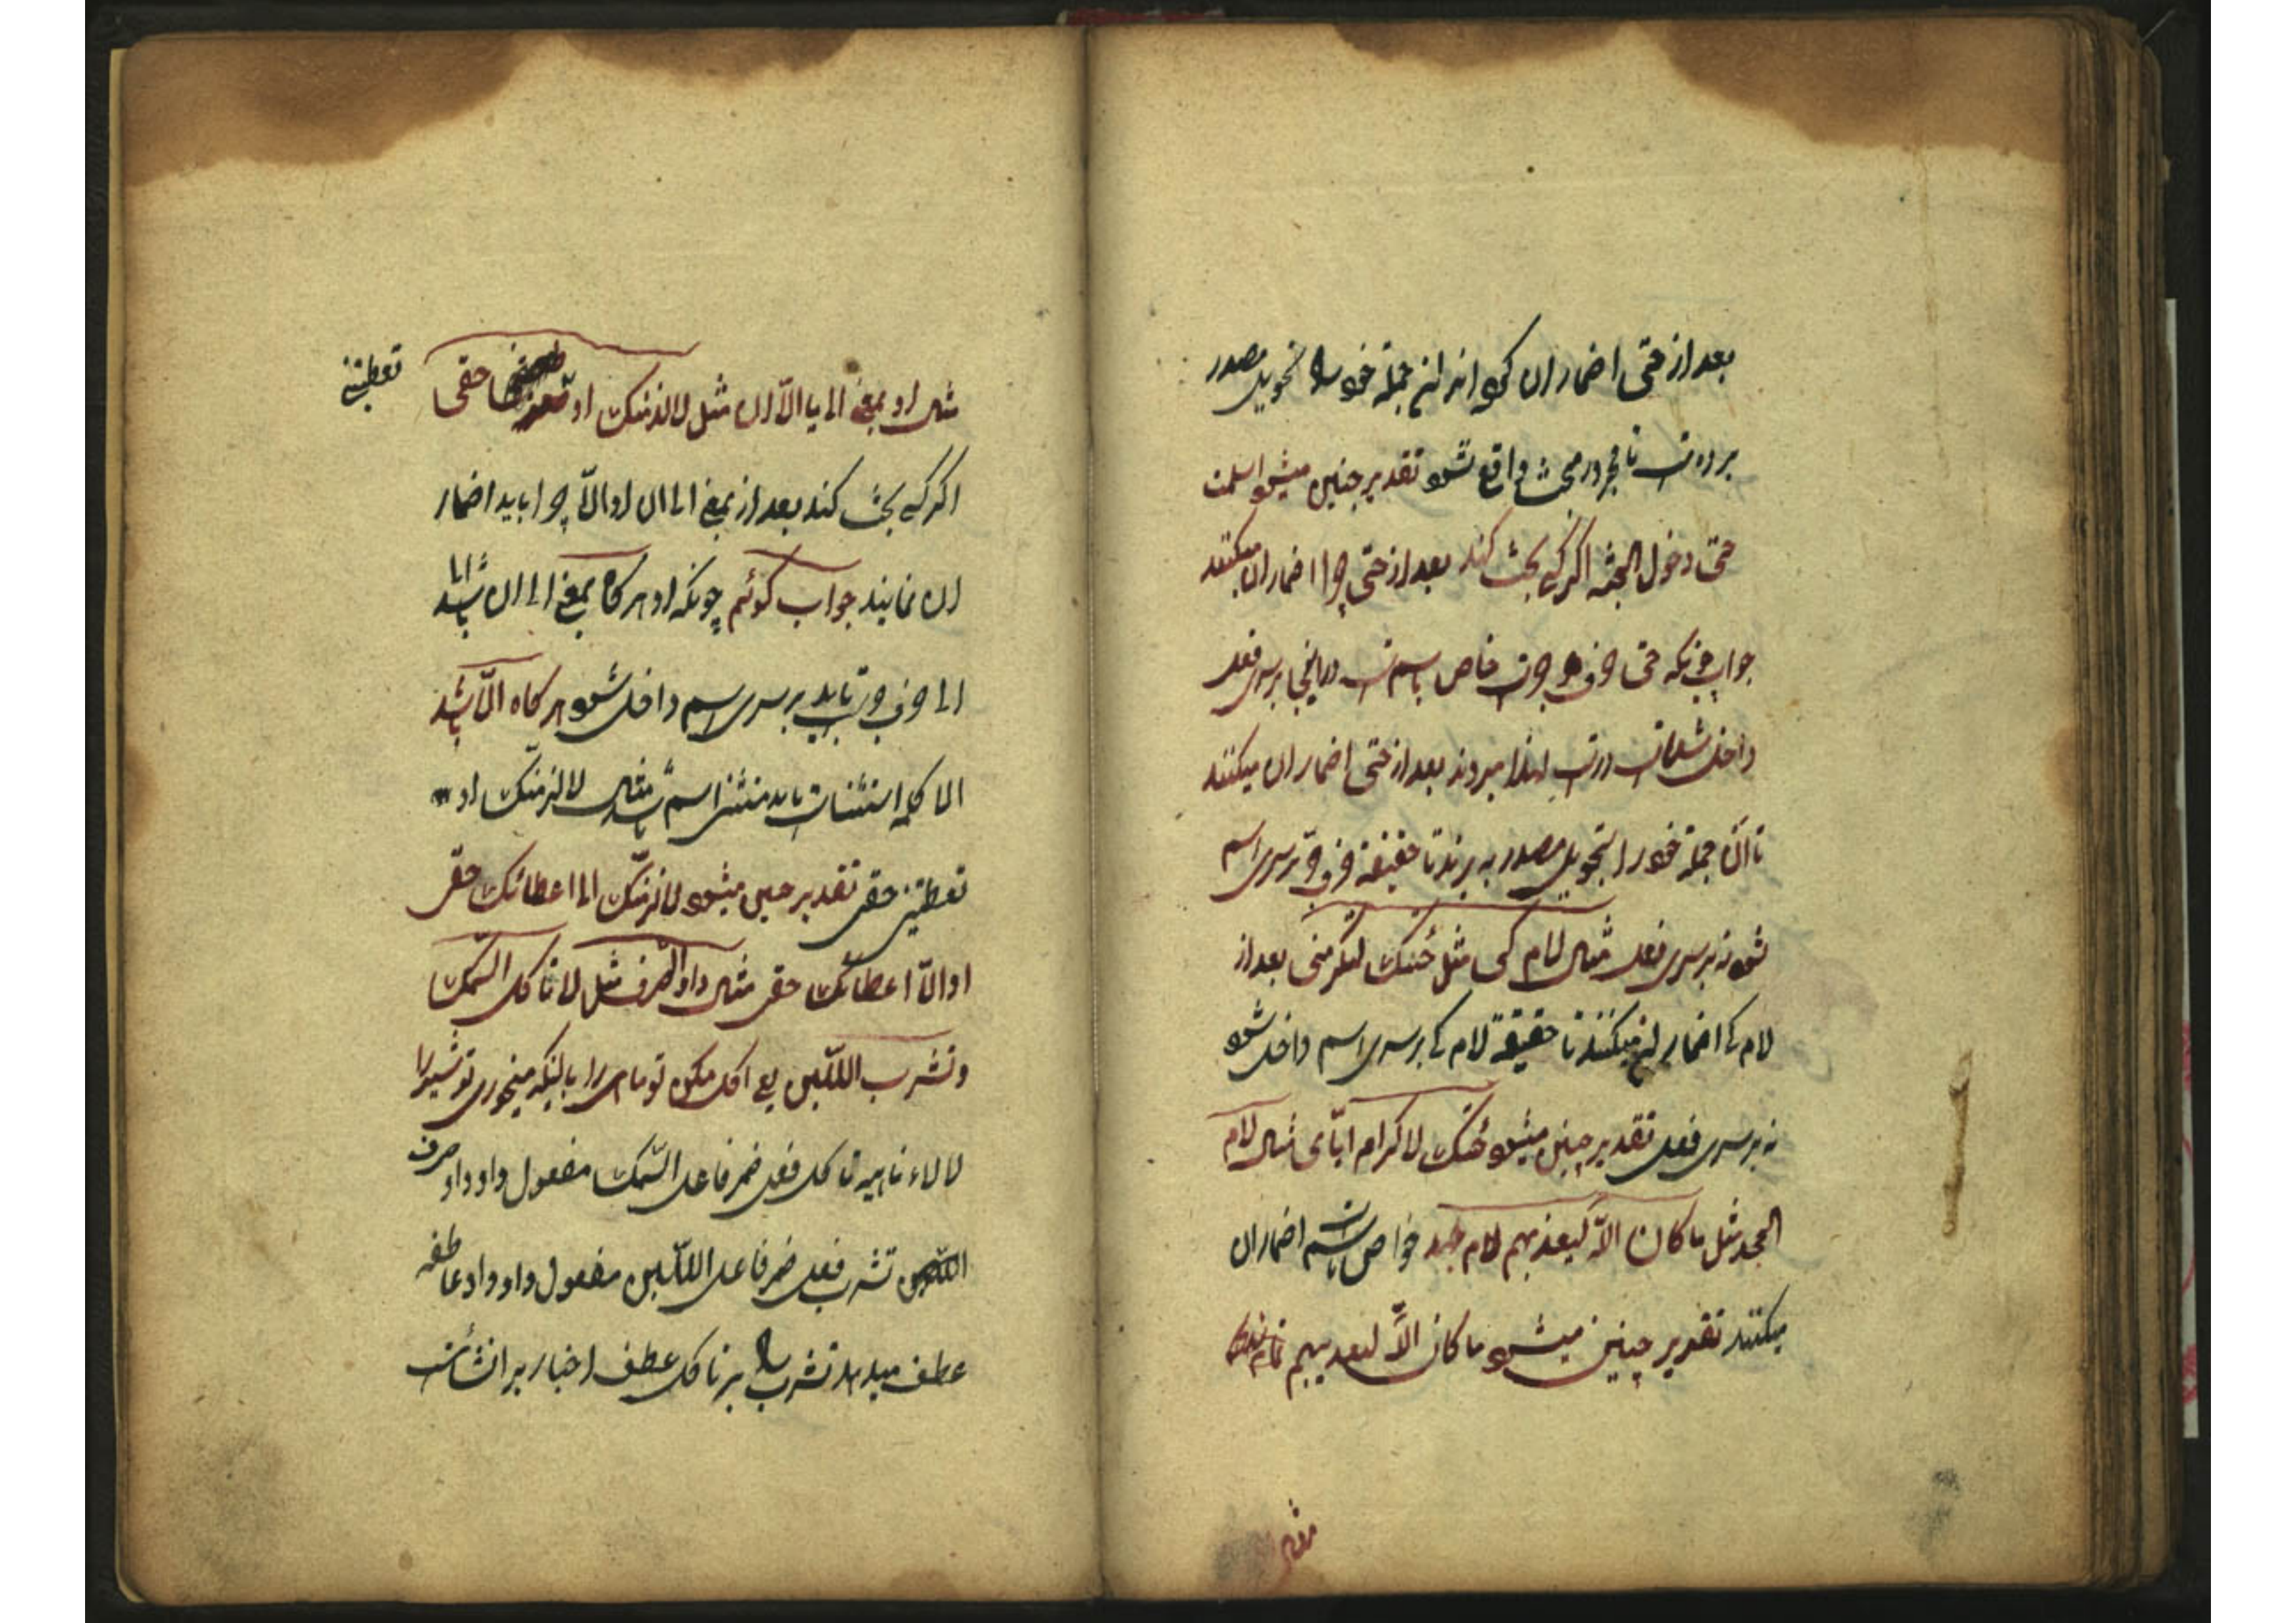 بعد از حتی اضمار ان کرد انرا نیز جمله خود را تحویل مصدر
برده است تا مجرور محتی واقع شود تقدیر چنین میشود اسلمت
حتی دخول الجنه اگر کسی بحث کند بعد از حتی چرا اضمار ان میکنند
جواب چونکه حتی حرف جر حرف جر خاص باسم است در اینجا بر سر فعل
داخل شده است لهذا میروند بعد از حتی اضمار ان میکنند
تا ان جمله خود را تحویل مصدر به برند تا حقیقة حرف جر بر سری اسم
شود نه بر سری فعل مثال لام کی مثل جئتک لتکرمنی بعد از
لام کی اضمار ان میکنند تا حقیقة لام کی بر سری اسم داخل شود
نه بر سری فعل تقدیر چنین میشود جئتک لاکرام ایّای مثال لام
الجحد مثل ما کان اللّه لیعذبهم لام جحد خواص باسم است اضمار ان
میکنند تقدیر چنین میشود ما کان اللّه لتعذیبهم
مثال
مثال او بمعنی الی یا الّا ان مثل لالزمنک او حقی
تعطینی
اگر کسی بحث کند بعد از بمعنی الی ان او الّا چرا باید اضمار
ان نمایند جواب گوئم چونکه او هرگاه بمعنی الی ان باشد
الی حرف جر است باید بر سری اسم داخل شود هرگاه الّا باشد
الا کلمه استثنا است باید مستثنی اسم باشد مثال لالزمنک او
تعطینی حقی تقدیر چنین میشود لالزمنّک الی اعطائک حقی
او الّا اعطائک حقی مثال واو الصرف مثل لا تاکل السّمک
وتشرب اللّبن یعنی اکل مکن تو ماهی را با اینکه میخوری تو شیر را
لا لاء ناهیه تاکل فعل ضمیر فاعل السّمک مفعول واو واو صرف
تشرب فعل ضمیر فاعل اللّبن مفعول واو واو عاطفه
عطف میدهد تشرب را بر تاکل عطف اخبار بر انشا است